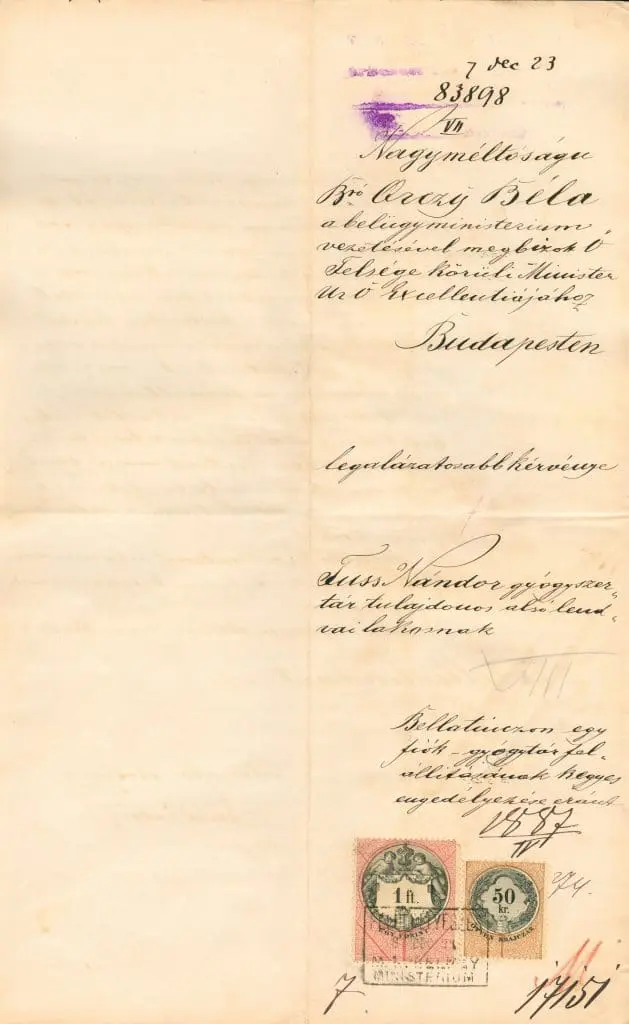 7 dec 23
83898
VII
Nagyméltóságu
Bró Orczy Béla
a belügyministerium
vezetésével megbizott Ő
Felsége körüli Minister
Ur Ő Excellentiájához
Budapesten
legalázatosabb kérvénye
Fuss Nándor gyógyszer„
tár tulajdonos alsó lend„
vai lakosnak
Bellatinczon egy
fiók-gyógytár fel-
állitásának kegyes
engedélyezése eránt
1887
IV
274.
1 ft.
50
kr.
MINISTERIUM
7
17151